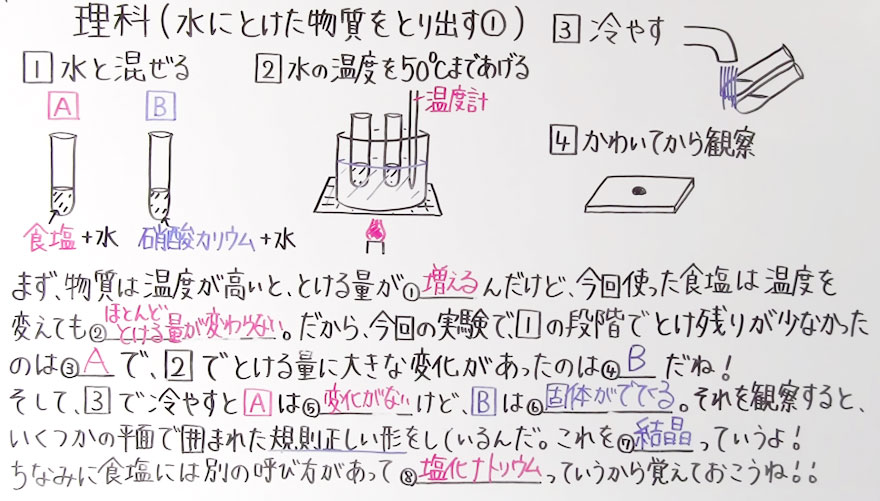 理科(水にとけた物質をとり出す①)
1 水と混ぜる
A
B
食塩+水
硝酸カリウム+水
2 水の温度を50℃まであげる
温度計
3 冷やす
4 かわいてから観察
まず、物質は温度が高いと、とける量が①増えるんだけど、今回使った食塩は温度を
変えても②ほとんどとける量が変わらない。だから、今回の実験で、1の段階でとけ残りが少なかった
のは③Aで、2でとける量に大きな変化があったのは④Bだね!
そして、3で冷やすとAは⑤変化がないけど、Bは⑥固体がでてくる。それを観察すると、
いくつかの平面で囲まれた規則正しい形をしているんだ。これを⑦結晶っていうよ!
ちなみに食塩には別の呼び方があって⑧塩化ナトリウムっていうから覚えておこうね!!